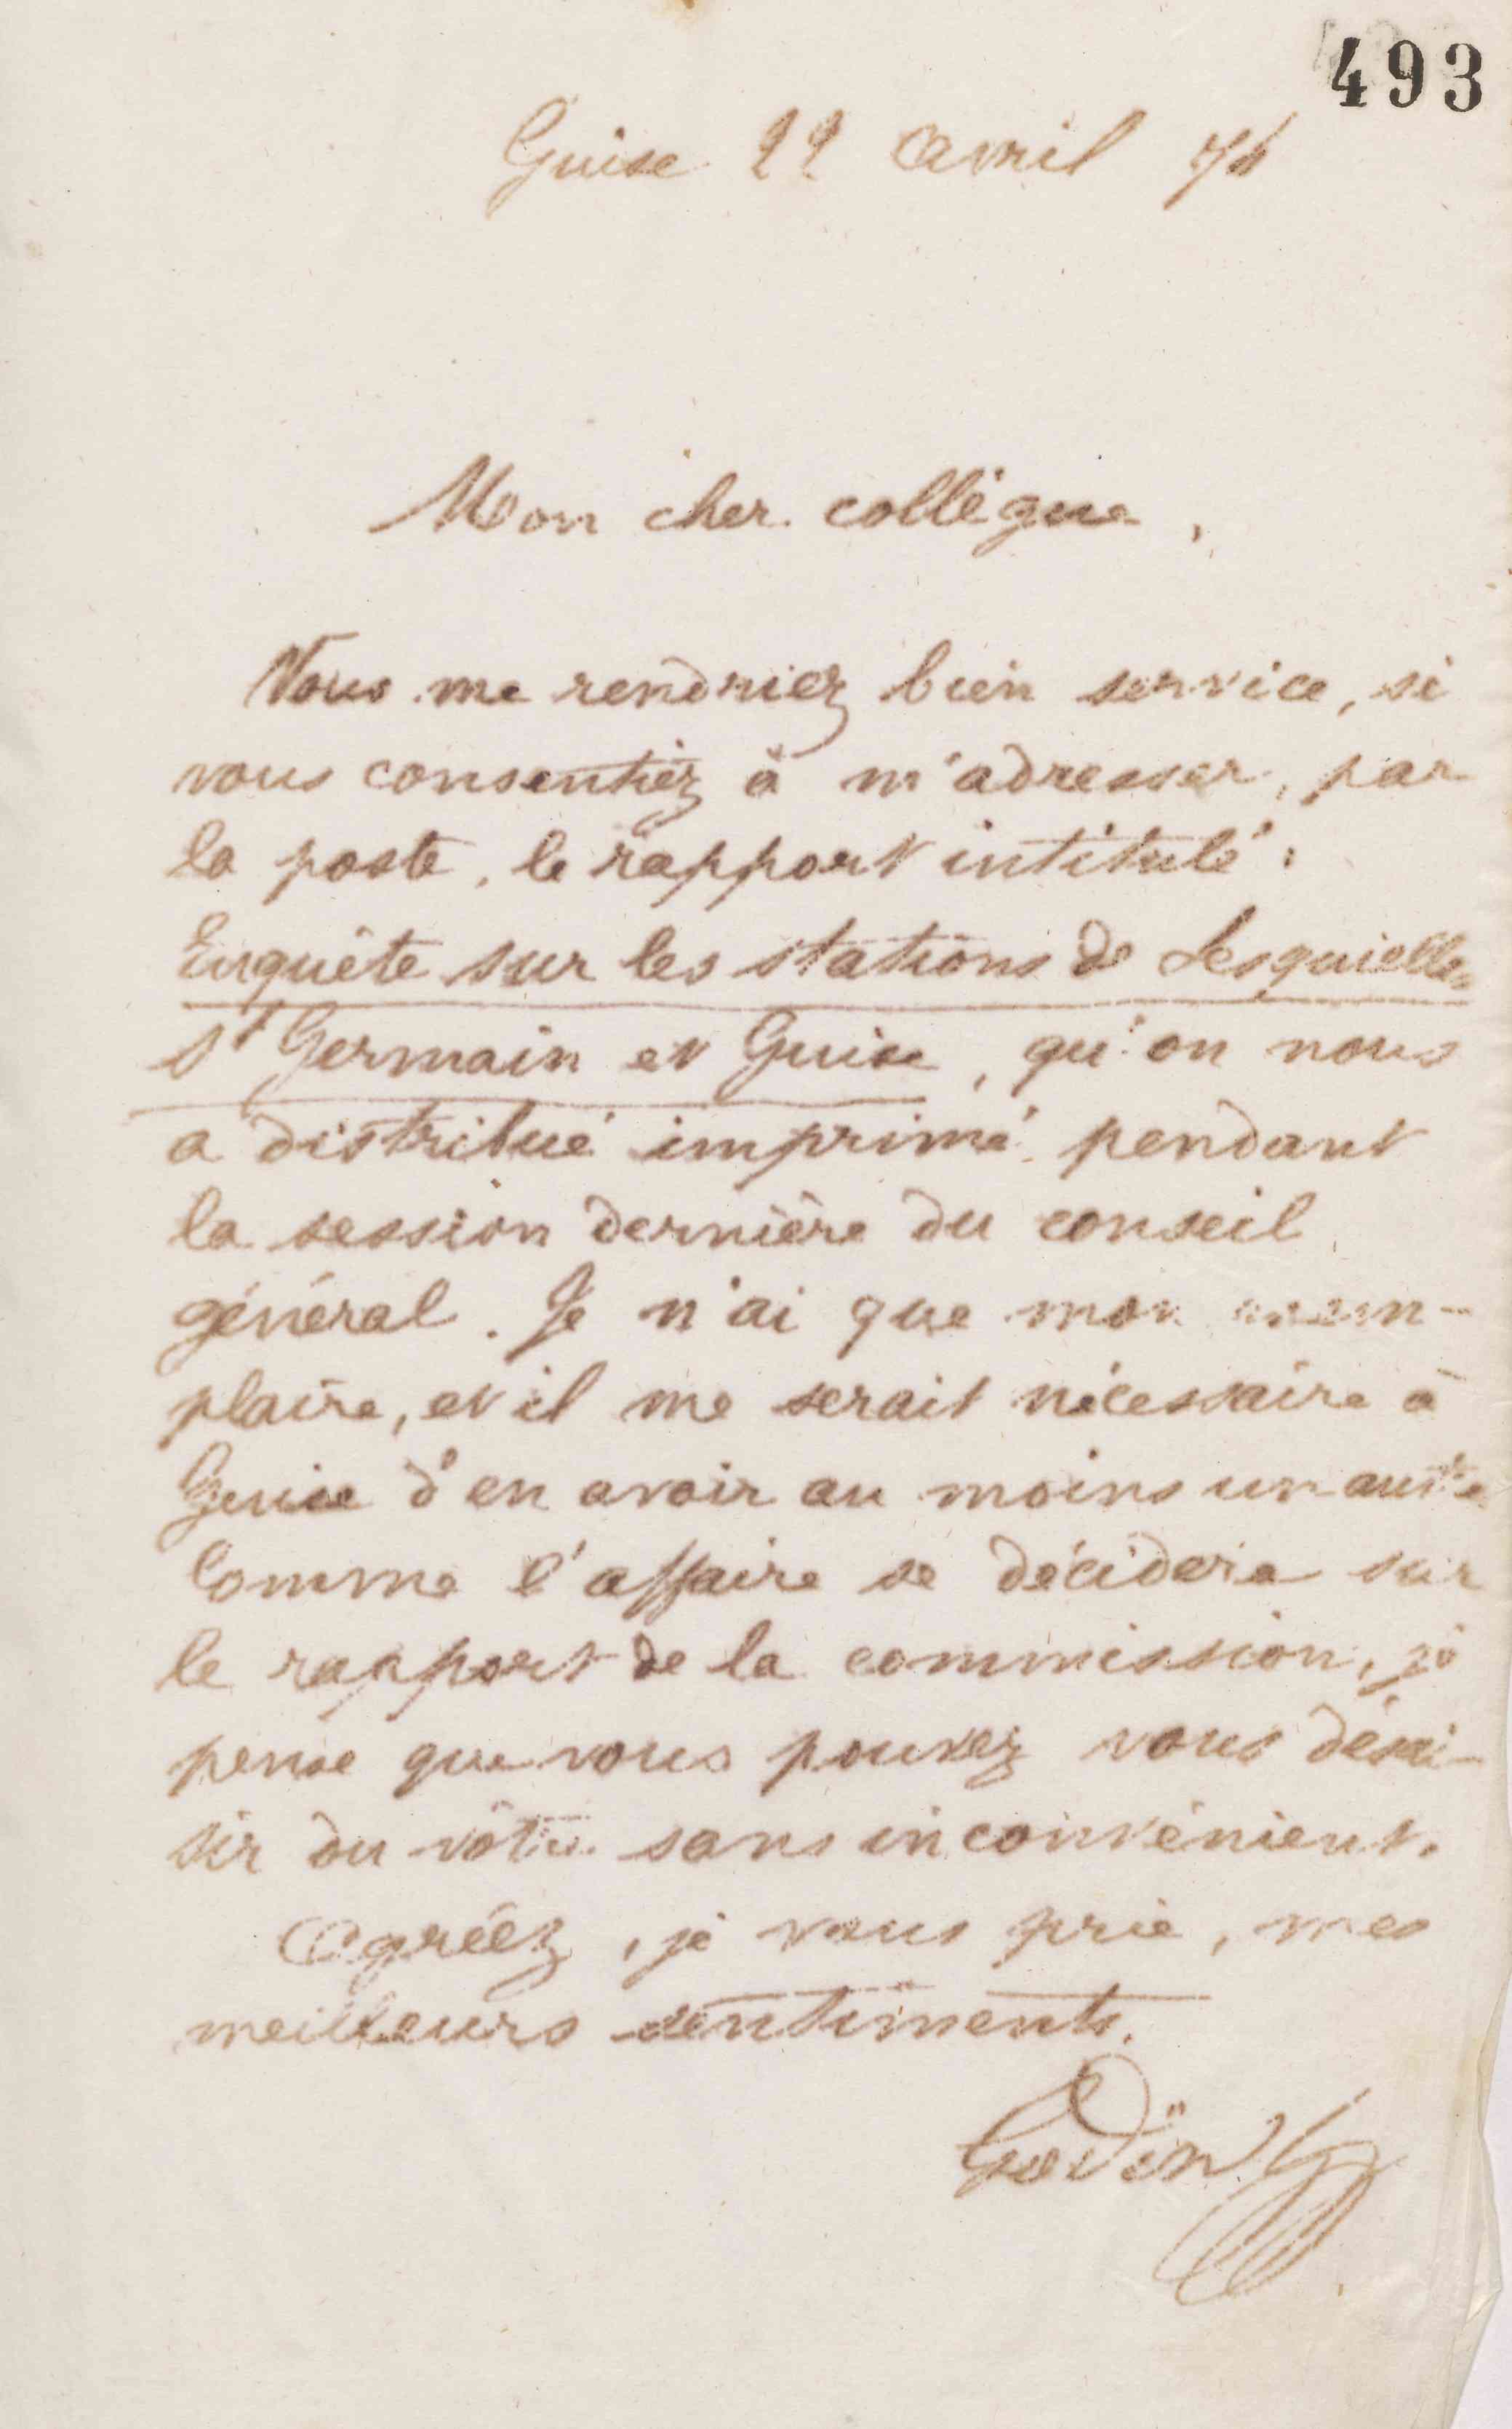 493
Guise 22 avril
Mon cher collègue,
Vous me rendriez bien service, si
vous consentiez à m'adresser, par
la poste, le rapport intitulé :
Enquête sur les stations de Lesquielles
St Germain et Guise, qu'on nous
a distribué imprimé pendant
la session dernière du conseil
général. Je n'ai que mon exem-
plaire, et il me serait nécessaire à
Guise d'en avoir au moins un autre
Comme l'affaire se décidera sur
le rapport de la commission, je
pense que vous pouvez vous désai-
sir du vôtre sans inconvénient.
Agréez, je vous prie, mes
meilleurs sentiments.
Godin